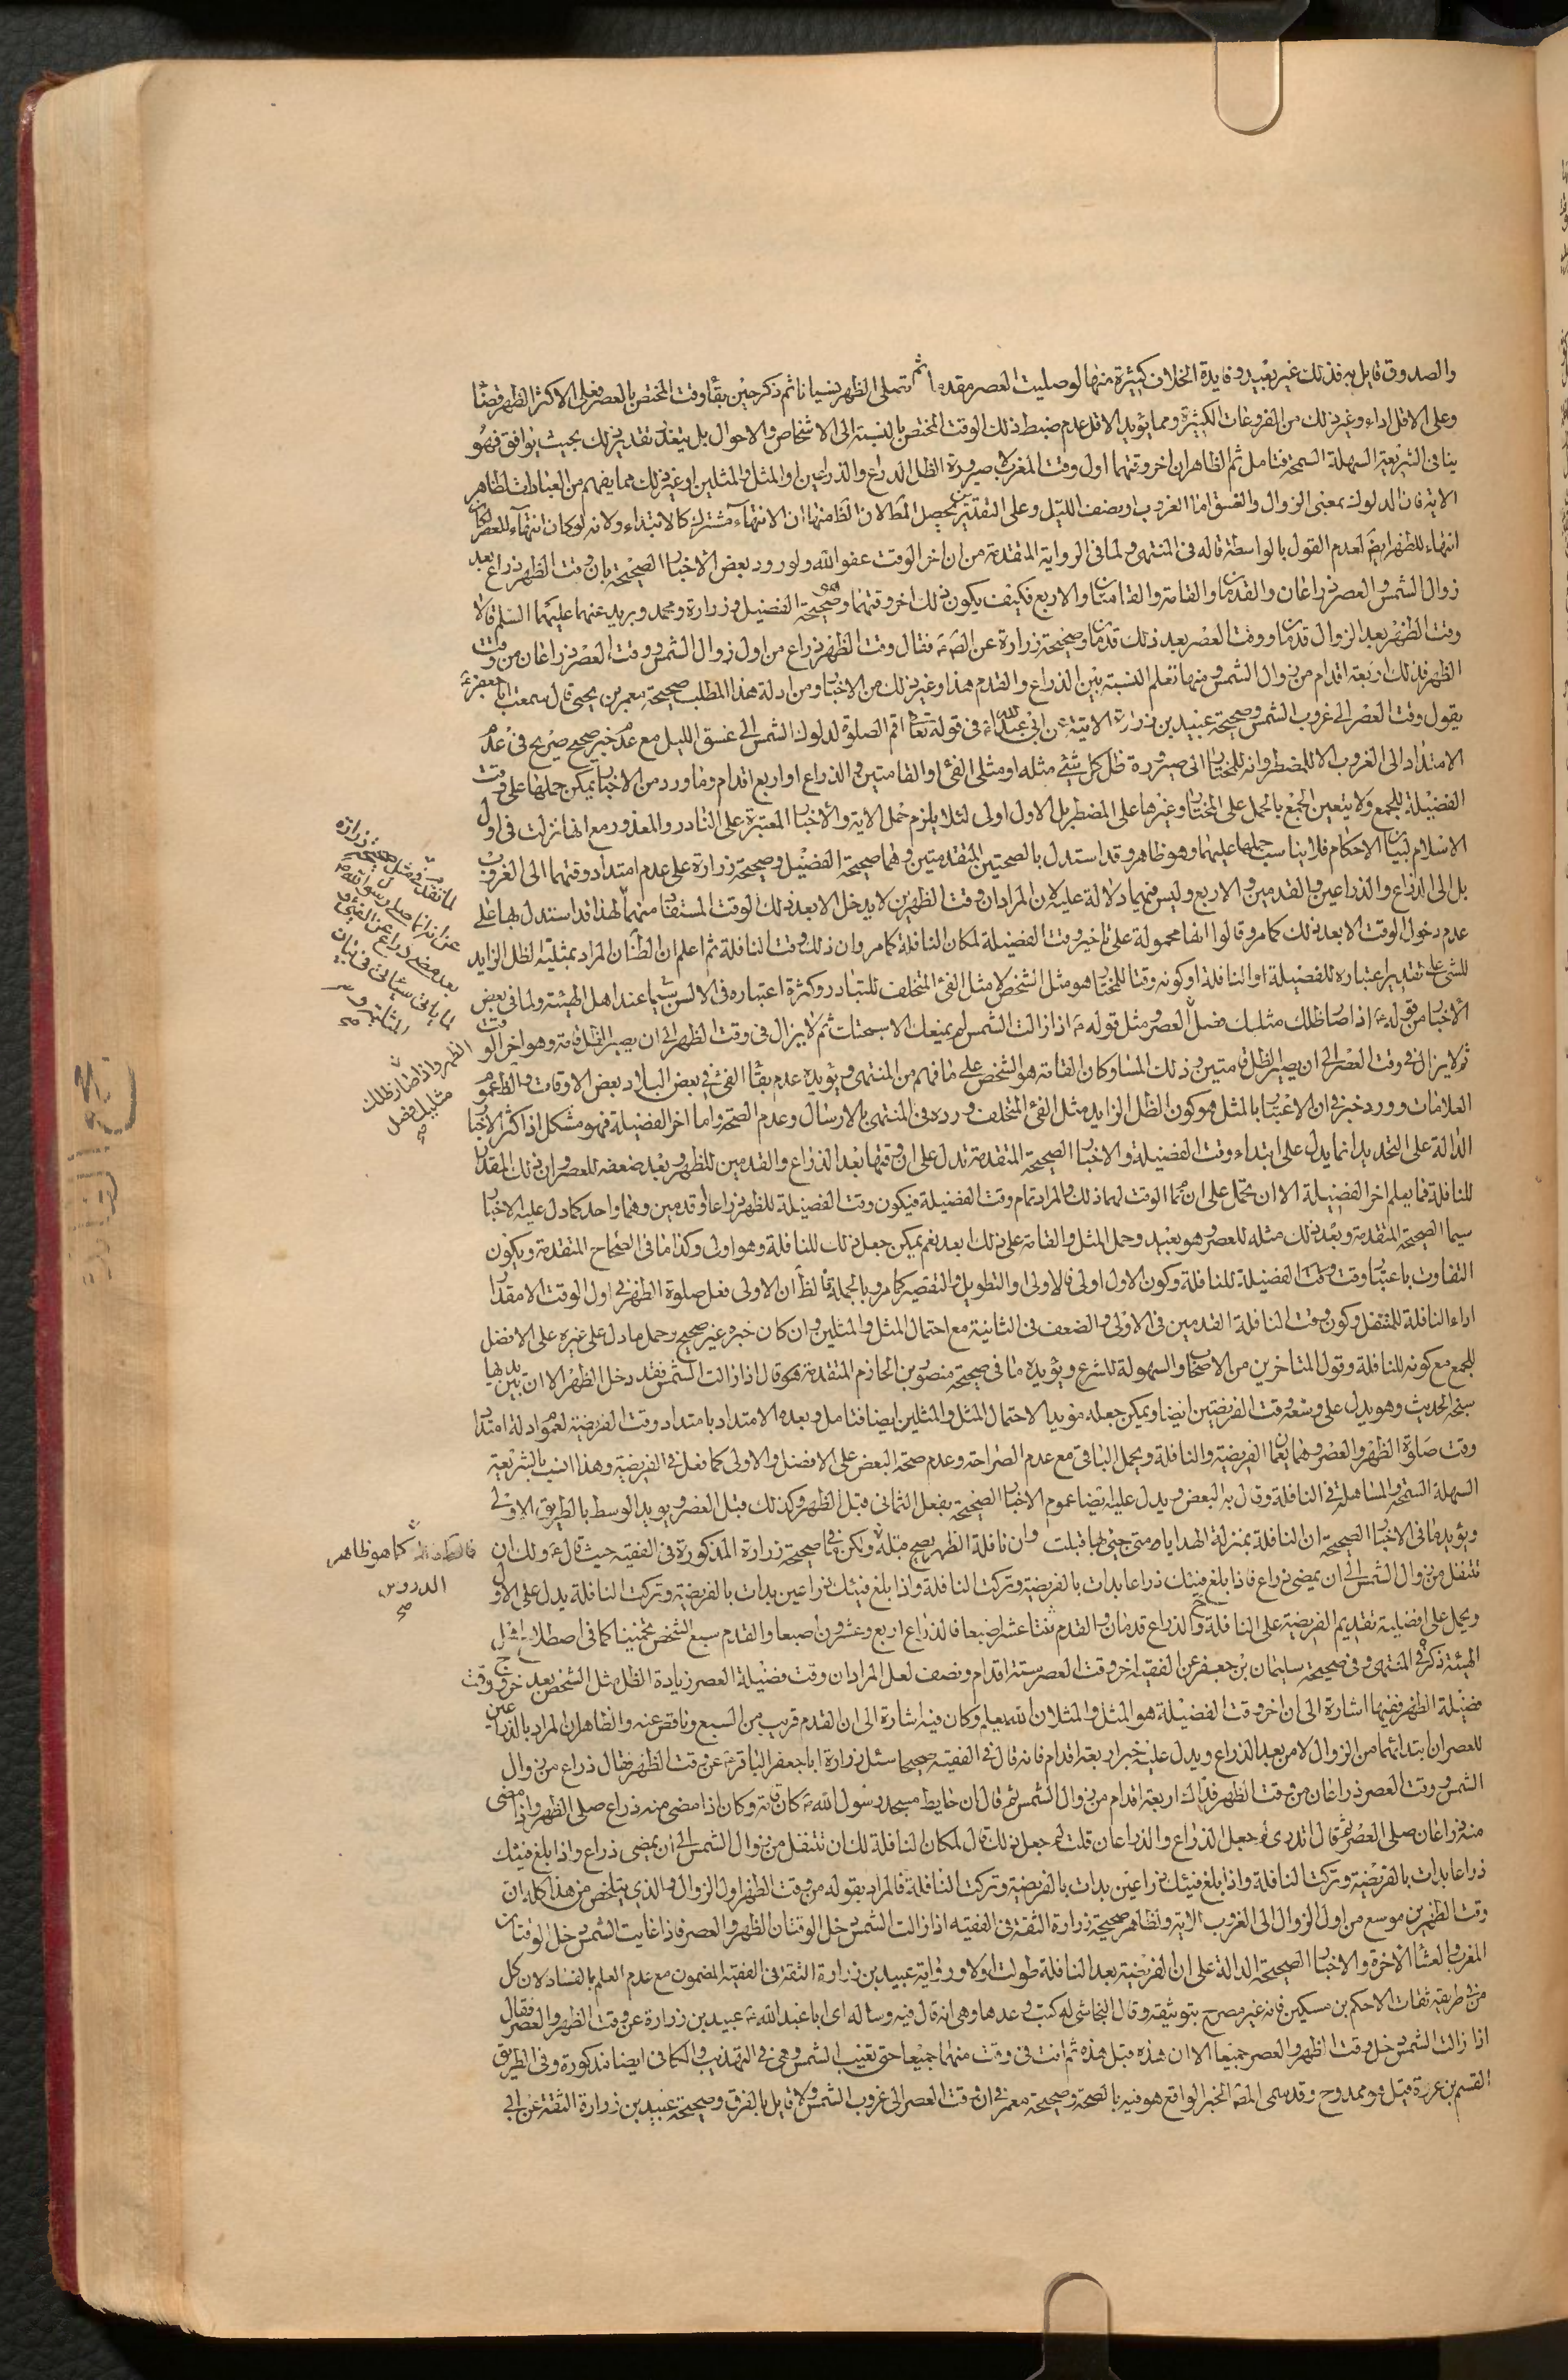 والصدوق قايل به فذلك غير بعيد وفايدة الخلاف كثيرة منها لو صليت العصر مقدما ثم تصلى الظهر نسيانا ثم ذكر حين بقا وقت المختص بالعصر فعلى الاكثر الظهر قضا
وعلى الاقل اداء وغير ذلك من الفروعات الكثيرة ومما يؤيد الاقل عدم ضبط ذلك الوقت المختص بالنسبة الى الاشخاص والاحوال بل يتعذر تقدير ذلك بحيث يوافق فهو
ينافى الشريعة السهلة السمحة فتامل ثم الظاهر ان اخر وقتهما اول وقت المغرب لا صيرورة الظل الذراع والذراعين او المثل والمثلين او غير ذلك مما يفهم من العبارات لظاهر
الاية فان الدلوك بمعنى الزوال والغسق اما الغروب او نصف الليل وعلى التقديرين يحصل المط لان الظ منها ان الانتهاء مشترك كالابتداء ولانه لو كان انتهاء للعصر لكان
انتهاء للظهر ايض لعدم القول بالواسطة قاله فى المنتهى ولما فى الرواية المتقدمة من ان اخر الوقت عفو الله ولورود بعض الاخبار الصحيحة بان وقت الظهر ذراع بعد
زوال الشمس والعصر ذراعان والقدمان والقامة والقامتان والاربع فكيف يكون ذلك اخر وقتهما وهو صحيحة الفضيل وزرارة ومحمد وبريد عنهما عليهما السلم قالا
وقت الظهر بعد الزوال قدمان ووقت العصر بعد ذلك قدمان وصحيحة زرارة عن الص ع فقال وقت الظهر ذراع من اول زوال الشمس ووقت العصر ذراعان من وقت
الظهر فذلك اربعة اقدام من زوال الشمس ومنها تعلم النسبة بين الذراع والقدم هذا وغير ذلك من الاخبار ومن ادلة هذا المطلب صحيحة معمر بن يحيى قال سمعت ابا جعفر ع
يقول وقت العصر الى غروب الشمس وصحيحة عبيد بن زرارة الاتية عن ابى عبد الله ع فى قوله تعا اقم الصلوة لدلوك الشمس الى غسق الليل مع عدم خبر صحيح صريح فى عدم
الامتداد الى الغروب الا للمضطر وانه للمختار الى صيرورة ظل كل شئ مثله او مثلى الفئ او القامتين والذراع او اربع اقدام وما ورد من الاخبار يمكن حملها على وقت
الفضيلة للجمع ولا يتعين الجمع بالحمل على المختار وغيرها على المضطر بل الاول اولى لئلا يلزم حمل الاية والاخبار المعتبرة على النادر والمعذور مع انها نزلت فى اول
الاسلام لبيان الاحكام فلا يناسب حملها عليهما وهو ظاهر وقد استدل بالصحيحتين المتقدمتين وهما صحيحة الفضيل وصحيحة زرارة على عدم امتداد وقتهما الى الغروب
بل الى الذراع والذراعين والقدمين والاربع وليس فيهما دلالة عليه لان المراد ان وقت الظهرين لا يدخل الا بعد ذلك الوقت المستفاد منهما لهذا قد استدل بها على
عدم دخول الوقت الا بعد ذلك كما مر وقالوا انها محمولة على تاخير وقت الفضيلة لمكان النافلة كما مر وان ذلك وقت النافلة ثم اعلم ان الظ ان المراد بمثلية الظل الزايد
للشئ على تقدير اعتباره للفضيلة او النافلة او كونه وقتا للمختار هو مثل الشخص لا مثل الفئ المتخلف للتبادر وكثرة اعتباره فى الالسن سيما عند اهل الهيئة ولما فى بعض
الاخبار من قوله ع اذا صار ظلك مثليك فصل العصر ومثل قوله ع اذا زالت الشمس لم يمنعك الا سبحتك ثم لا يزال فى وقت الظهر الى ان يصير الظل قامة وهو اخر الوقت
ثم لا يزال فى وقت العصر الى ان يصير الظل قامتين وذلك المسا وكان القامة هو الشخص على ما فهم من المنتهى ويؤيده عدم بقا الفئ فى بعض البلاد بعض الاوقات والظ عموم
العلامات وورد خبر فى ان الاعتبار بالمثل هو كون الظل الزايد مثل الفئ المتخلف ورده فى المنتهى بالارسال وعدم الصحة واما اخر الفضيلة فهو مشكل اذ اكثر الاخبار
الدالة على التحديد انما يدل على ابتداء وقت الفضيلة والاخبار الصحيحة المتقدمة تدل على ان وقتها بعد الذراع والقدمين للظهر وبعد ضعفه للعصر وان ذلك المقدار
للنافلة فما يعلم اخر الفضيلة الا ان تحمل على ان تمام الوقت لهما ذلك والمراد تمام وقت الفضيلة فيكون وقت الفضيلة للظهر ذراعا او قدمين وهما واحد كما دل عليه الاخبار
سيما الصحيحة المتقدمة وبعد ذلك مثله للعصر وهو بعيد وحمل المثل والقامة على ذلك ابعد نعم يمكن جعل ذلك للنافلة وهو اولى وكذا ما فى الصحاح المتقدمة ويكون
التفاوت باعتبار وقت الفضيلة للنافلة وكون الاول اولى فالاولى او التطويل والتقصير كما مر وبالجملة فالظ ان الاولى فعل صلوة الظهر فى اول الوقت الا مقدار
اداء النافلة للمتنفل وكون وقت النافلة القدمين فى الاولى والضعف فى الثانية مع احتمال المثل والمثلين وان كان خبره غير صحيح وحمل ما دل على غيره على الافضل
للجمع مع كونه للنافلة وقول المتاخرين من الاصحاب والسهولة للشرع ويؤيده ما فى صحيحة منصور بن الحازم المتقدمة هو قال اذا زالت الشمس فقد دخل الظهر الا ان بين يديها
سبحة الحديث وهو يدل على وسعة وقت الفريضتين ايضا ويمكن جعله مؤيدا لاحتمال المثل والمثلين ايضا فتامل وبعده الامتداد بامتداد وقت الفريضة لعموم ادلة امتداد
وقت صلوة الظهر والعصر وهما يعمان الفريضة والنافلة ويحمل الباقى مع عدم الصراحة وعدم صحة البعض على الافضل والاولى كما فعل فى الفريضة وهذا انسب بالشريعة
السهلة السمحة والمساهلة فى النافلة وقال به البعض ويدل عليه ايضا عموم الاخبار الصحيحة بفعل الثمانى قبل الظهر وكذلك قبل العصر ويويد الوسط بالطريق الاولى
ويؤيده ما فى الاخبار الصحيحة ان النافلة بمنزلة الهدايا متى جئ بها قبلت وان نافلة الظهر يصح قبله ولكن فى صحيحة زرارة المذكورة فى الفقيه حيث قال ع ولك ان
تتنفل من زوال الشمس الى ان يمضى ذراع فاذا بلغ فيئك ذراعا بدات بالفريضة وتركت النافلة واذا بلغ فيئك ذراعين بدات بالفريضة وتركت النافلة يدل على الاول
ويحمل على افضلية تقديم الفريضة على النافلة ح والذراع قدمان والقدم ثنتا عشر اصبعا فالذراع اربع وعشرون اصبعا والقدم سبع الشخص تخمينا كما فى اصطلاح اهل
الهيئة ذكره فى المنتهى وفى صحيحة سليمان بن جعفر عن الفقيه اخر وقت العصر ستة اقدام ونصف لعل المراد ان وقت فضيلة العصر زيادة الظل مثل الشخص بعد خروج وقت
فضيلة الظهر ففيها اشارة الى ان اخر وقت الفضيلة هو المثل والمثلان الله يعلم وكان فيه اشارة الى ان القدم قريب من السبع وناقص عنه والظاهر ان المراد بالذراعين
للعصر ان ابتدائهما من الزوال لا من بعد الذراع ويدل عليه خبر اربعة اقدام فانه قال فى الفقيه صحيحا سئل زرارة ابا جعفر الباقر ع عن وقت الظهر فقال ذراع من زوال
الشمس ووقت العصر ذراعان من وقت الظهر فذاك اربعة اقدام من زوال الشمس ثم قال ان حايط مسجد رسول الله ص كان قامة وكان اذا مضى منه ذراع صلى الظهر واذا مضى
منه ذراعان صلى العصر ثم قال اتدرى لم جعل الذراع والذراعان قلت لم جعل ذلك قال لمكان النافلة لك ان تتنفل من زوال الشمس الى ان يمضى ذراع واذا بلغ فيئك
ذراعا بدات بالفريضة وتركت النافلة واذا بلغ فيئك ذراعين بدات بالفريضة وتركت النافلة فالمراد بقوله من وقت الظهر اول الزوال والذى يتلخص من هذا كله ان
وقت الظهرين موسع من اول الزوال الى الغروب الاية ولظاهر صحيحة زرارة الثقة فى الفقيه اذا زالت الشمس دخل الوقتان الظهر والعصر فاذا غابت الشمس دخل الوقتان
المغرب والعشا الاخرة والاخبار الصحيحة الدالة على ان الفريضة بعد النافلة طولت اولا ورواية عبيد بن زرارة الثقة فى الفقيه المضمون مع عدم العلم بالفساد لان كل
من فى طريقه ثقات الا حكم بن مسكين فانه غير مصرح بتوثيقه وقال النجاشى له كتب وعدها وهى انه قال فيه وساله اى ابا عبد الله ع عبيد بن زرارة عن وقت الظهر والعصر فقال
اذا زالت الشمس دخل وقت الظهر والعصر جميعا الا ان هذه قبل هذه ثم انت فى وقت منهما جميعا حتى تغيب الشمس وهى فى التهذيب والكافى ايضا مذكورة وفى الطريق
القسم بن عروة قيل هو ممدوح وقد سمى المص الخبر الواقع هو فيه بالصحة وصحيحة معمر فى ان وقت العصر الى غروب الشمس ولا قايل بالفرق وصحيحة عبيد بن زرارة الثقة عن ابى
لما تقدم ومثل صحيحة زرارة
عن انه انما صلى رسول الله ص
بعد مضى ذراع من الفئ و
لما ياتى فى بيان
المثلين و
الظهر واذا صار ظلك
مثليك فصل
كما هو ظاهر
الدروس